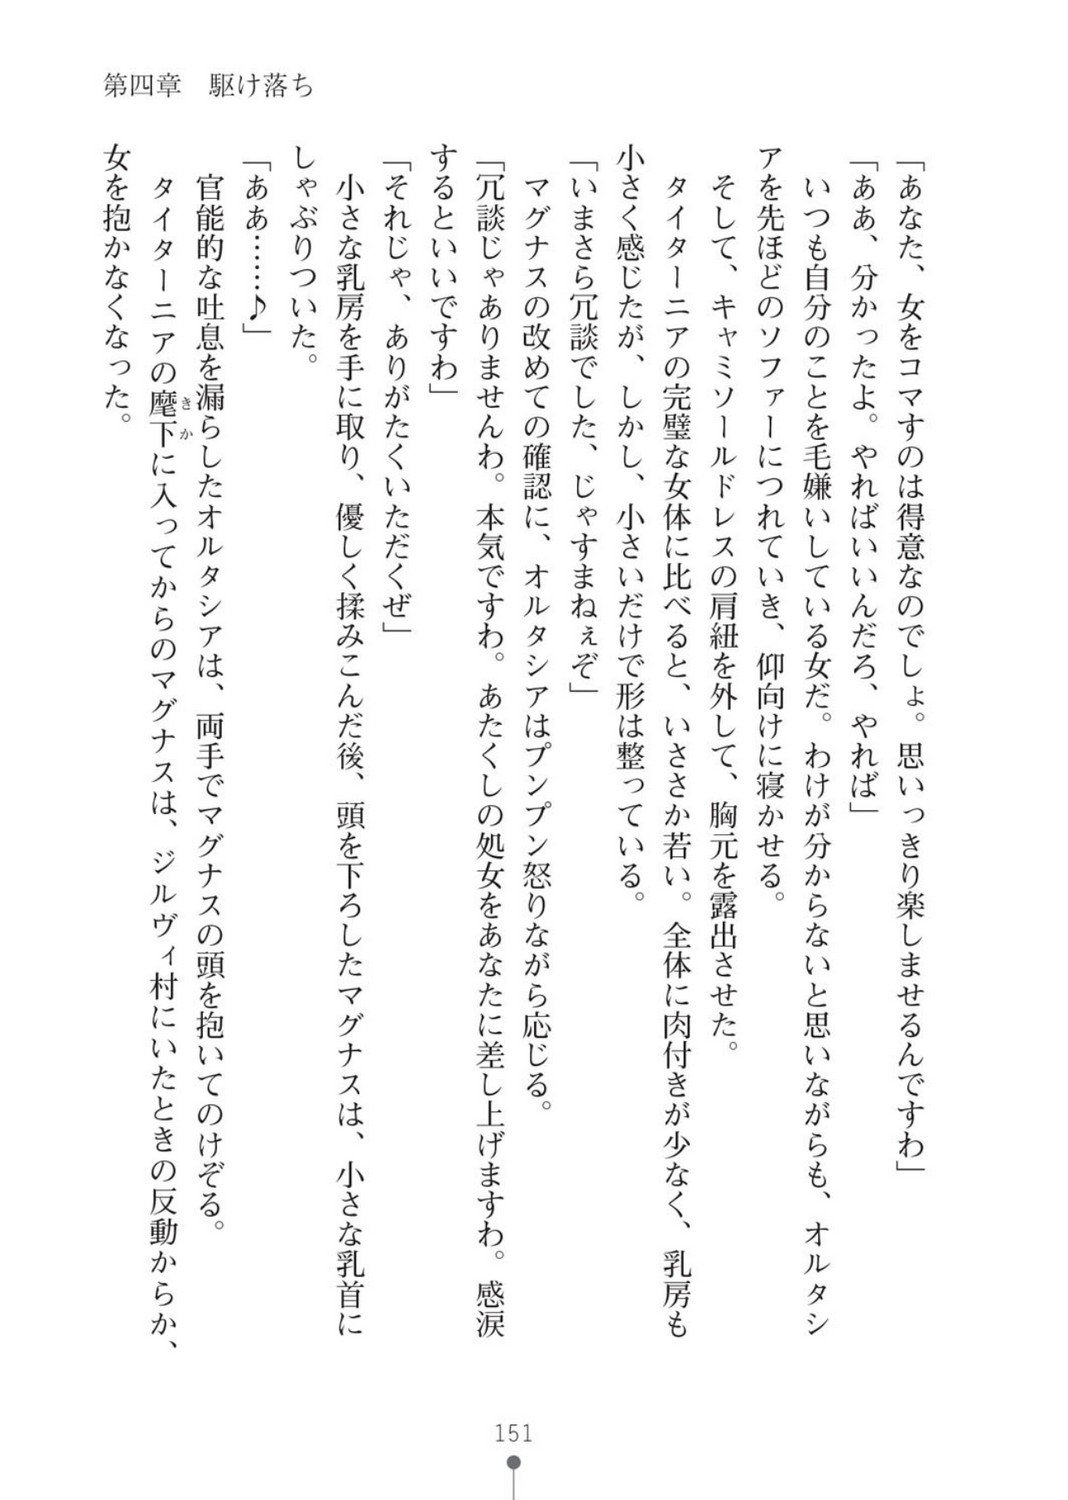 第四章　駆け落ち
「あなた、女をコマすのは得意なのでしょ。思いっきり楽しませるんですわ」
「ああ、分かったよ。やればいいんだろ、やれば」
　いつも自分のことを毛嫌いしている女だ。わけが分からないと思いながらも、オルタシ
アを先ほどのソファーにつれていき、仰向けに寝かせる。
　そして、キャミソールドレスの肩紐を外して、胸元を露出させた。
　タイターニアの完璧な女体に比べると、いささか若い。全体に肉付きが少なく、乳房も
小さく感じたが、しかし、小さいだけで形は整っている。
「いまさら冗談でした、じゃすまねぇぞ」
　マグナスの改めての確認に、オルタシアはプンプン怒りながら応じる。
「冗談じゃありませんわ。本気ですわ。あたくしの処女をあなたに差し上げますわ。感涙
するといいですわ」
「それじゃ、ありがたくいただくぜ」
　小さな乳房を手に取り、優しく揉みこんだ後、頭を下ろしたマグナスは、小さな乳首に
しゃぶりついた。
「ああ……♪」
　官能的な吐息を漏らしたオルタシアは、両手でマグナスの頭を抱いてのけぞる。
　タイターニアの麾下きかに入ってからのマグナスは、ジルヴィ村にいたときの反動からか、
女を抱かなくなった。
151